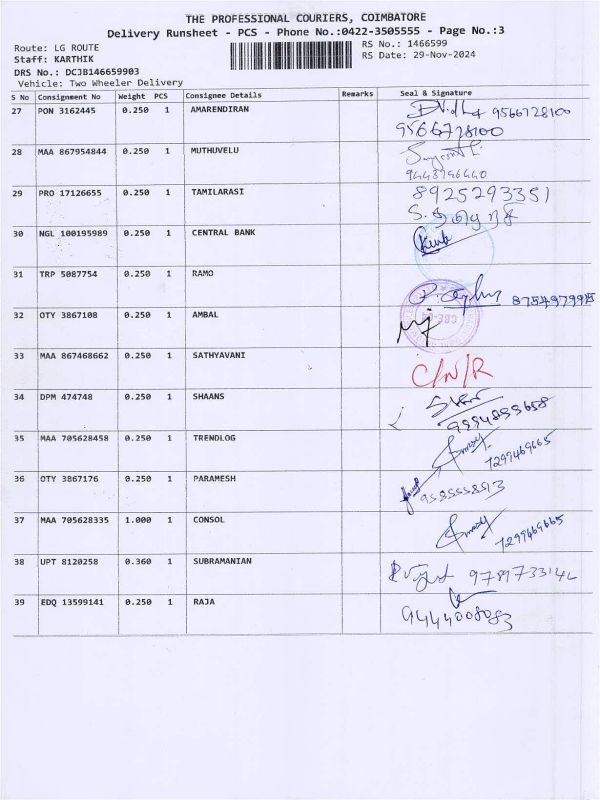 THE PROFESSIONAL COURIERS, COIMBATORE
Delivery Runsheet - PCS - Phone No.:0422-3505555 - Page No.:3
Route: LG ROUTE RS No.: 1466599
Staff: KARTHIK RS Date: 29-Nov-2024
DRS No.: DCJB146659903
Vehicle: Two Wheeler Delivery
S No Consignment No Weight PCS Consignee Details Remarks Seal & Signature
27 PON 3162445 0.250 1 AMARENDIRAN 9566728100
9566728100
28 MAA 867954844 0.250 1 MUTHUVELU
29 PRO 17126655 0.250 1 TAMILARASI 8925293351
30 NGL 100195989 0.250 1 CENTRAL BANK
31 TRP 5087754 0.250 1 RAMO
32 OTY 3867108 0.250 1 AMBAL
33 MAA 867468662 0.250 1 SATHYAVANI C/N/R
34 DPM 474748 0.250 1 SHAANS
35 MAA 705628458 0.250 1 TRENDLOG
7299469665
36 OTY 3867176 0.250 1 PARAMESH
37 MAA 705628335 1.000 1 CONSOL
7299469665
38 UPT 8120258 0.360 1 SUBRAMANIAN
39 EDQ 13599141 0.250 1 RAJA
9444008083